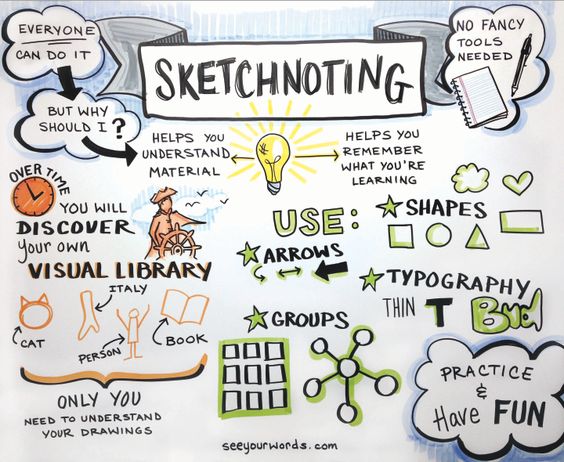 EVERYONE
CAN DO IT
SKETCHNOTING
NO FANCY
TOOLS
NEEDED
BUT WHY
SHOULD I?
HELPS YOU
UNDERSTAND
MATERIAL
HELPS YOU
REMEMBER
WHAT YOU'RE
LEARNING
OVER TIME
YOU WILL
DISCOVER
your own
VISUAL LIBRARY
CAT
ITALY
PERSON
BOOK
ONLY YOU
NEED TO UNDERSTAND
YOUR DRAWINGS
USE:
ARROWS
SHAPES
TYPOGRAPHY
THIN T
GROUPS
PRACTICE
&
Have FUN
seeyourwords.com